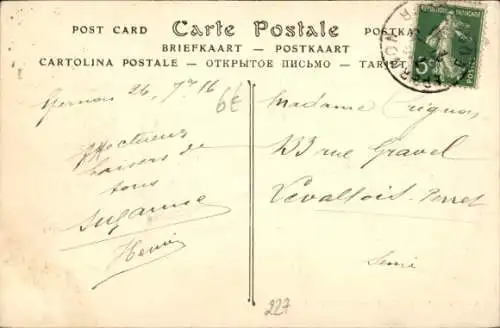 POST CARD — Carte Postale — POSTKA
BRIEFKAART — POSTKAART
CARTOLINA POSTALE — ОТКРЫТОЕ ПИСЬМО — TARJET
REPUBLIQUE FRANÇAISE
5c
6€
26, 7bre 16
Affectueux
baisers de
tous
Suzanne
Henri
Madame
133 rue Gravel
Levallois-Perret
Seine
227